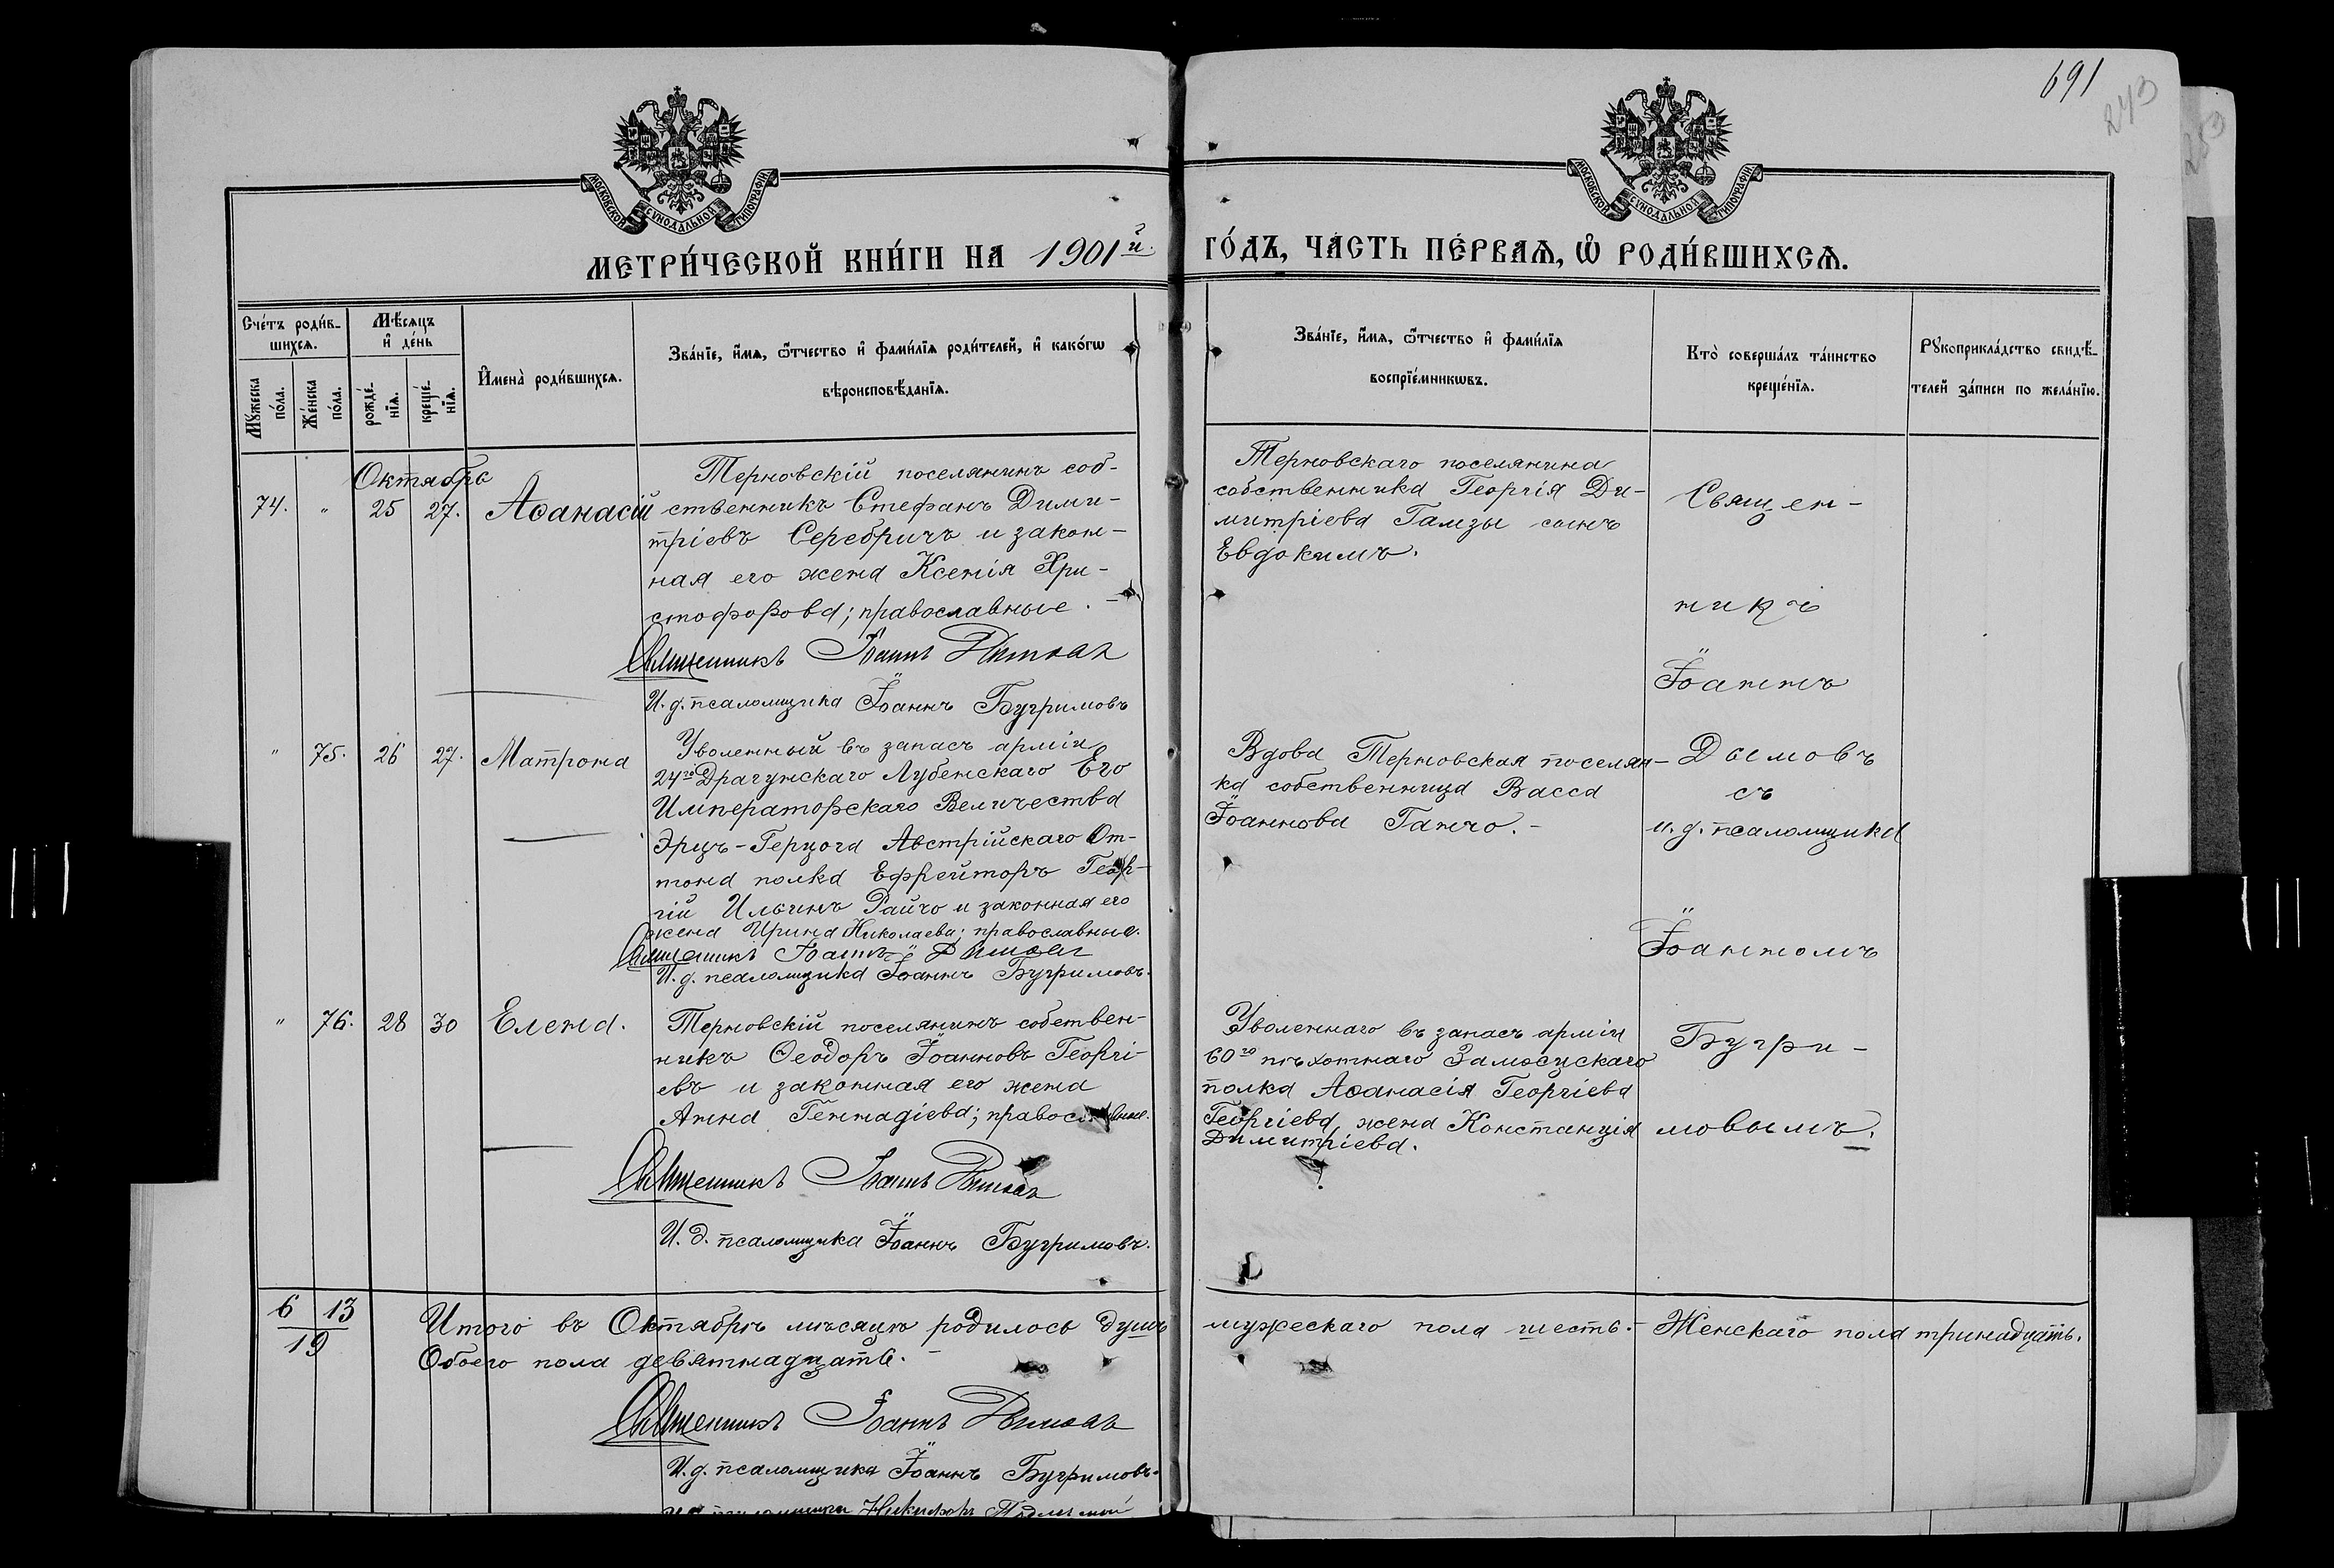 691
243
МОСКОВСКОЙ СУНОДАЛЬНОЙ ТИПОГРАФІИ
МОСКОВСКОЙ СУНОДАЛЬНОЙ ТИПОГРАФІИ
МЕТРИ́ЧЕСКОЙ КНИ́ГИ НА 1901й.
ГО́ДЪ, ЧА́СТЬ ПЕ́РВАѦ, Ѡ РОДИ́ВШИХСѦ.
Сче́тъ роди́в-
шихсѧ.
Мꙋжеска по́ла.
Же́нска по́ла.
Мѣ́сѧцъ
и҆ де́нь
рожде́-
нїѧ.
креще́-
нїѧ.
И҆мена̀ роди́вшихсѧ.
Зва́нїе, и҆́мѧ, ѻ҆́тчество и҆ фами́лїѧ роди́телей, и҆ како́гѡ
вѣроисповѣ́данїѧ.
Зва́нїе, и҆́мѧ, ѻ҆́тчество и҆ фами́лїѧ
воспрїе́мникѡвъ.
Кто̀ соверша́лъ та́инство
креще́нїѧ.
Рꙋкоприкла́дство свидѣ́-
телей за́писи по жела́нїю.
Октябрь
74.
"
25
27.
Аѳанасій
Терновскій поселянинъ соб-
ственникъ Стефанъ Дими-
тріевъ Серебричъ и закон-
ная его жена Ксенія Хри-
стофорова; православные.
Священникъ Іоаннъ Дымовъ
И. д. псаломщика Іоаннъ Бугримовъ
Терновскаго поселянина
собственника Георгія Ди-
митріева Гамзы сынъ
Евдокимъ.
Священ-
никъ
Іоаннъ
"
75.
26
27.
Матрона
Уволенный въ запасъ арміи
24го Драгунскаго Лубенскаго Его
Императорскаго Величества
Эрцъ-Герцога Австрійскаго От-
тона полка Ефрейторъ Геор-
гій Ильинъ Райчо и законная его
жена Ирина Николаева; православные.
Священникъ Іоаннъ Дымовъ
И. д. псаломщика Іоаннъ Бугримовъ.
Вдова Терновская поселян-
ка собственница Васса
Іоаннова Ганчо.-
Дымовъ
съ
и. д. псаломщика
Іоанномъ
"
76.
28
30
Елена.
Терновскій поселянинъ собствен-
никъ Ѳеодоръ Іоанновъ Георгі-
евъ и законная его жена
Анна Геннадіева;
Священникъ Іоаннъ Дымовъ
И. д. псаломщика Іоаннъ Бугримовъ.
Уволеннаго въ запасъ арміи
60го пѣхотнаго Замосцскаго
полка Аѳанасія Георгіева
Георгіева жена Констанція
Димитріева.
Бугри-
мовымъ.
6 13
19
Итого въ Октябрѣ мѣсяцѣ родилось душъ мужескаго пола шесть.- Женскаго пола тринадцать.
Обоего пола девятнадцать.-
Священникъ Іоаннъ Дымовъ
И. д. псаломщика Іоаннъ Бугримовъ.